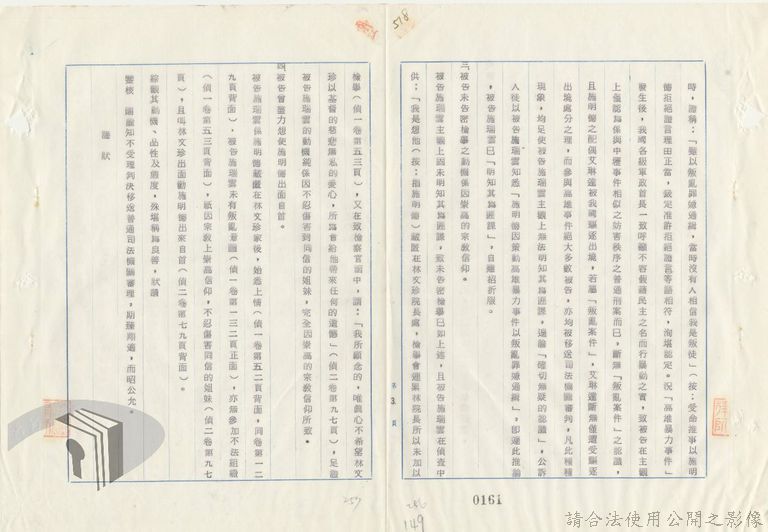 時，證稱：「雖以叛亂罪嫌通緝，當時沒有人相信我是叛徒」（按：受命推事以施明
德拒絕證言理由正當，裁定准許拒絕證言）等語相符，洵堪認定。況「高雄暴力事件」
發生後，我國各級軍政首長一致呼籲不容假藉民主之名而行暴動之實，致被告在主觀
上僅認為係與中壢事件相似之妨害秩序之普通刑案而已，斷無「叛亂案件」之認識，
且施明德之配偶艾琳達被我國驅逐出境，若屬「叛亂案件」，艾琳達斷無僅遭受驅逐
出境處分之理，而參與高雄事件絕大多數被告，亦均被移送司法機關審判，凡此種種
現象，均足使被告施瑞雲主觀上無法明知其為匪諜，遑論「確切無疑的認識」，公訴
人徒以被告施瑞雲知悉「施明德因策動高雄暴力事件以叛亂罪嫌通緝」，即遽此推論
，被告施瑞雲已「明知其為匪諜」，自難招折服。
三、被告未告密檢舉之動機係因崇高的宗教信仰。
被告施瑞雲主觀上因未明知其為匪諜，致未告密檢舉已如上述，且被告施瑞雲在偵查中
供：「我是想他（按：指施明德）藏匿在林文珍院長處，檢舉會連累林院長所以未加以
第3頁
檢舉（偵一卷第五三頁），又在致檢察官函中，謂：「我所顧念的，唯真心不希望林文
珍以基督的慈悲無私的愛心，所為會給她帶來任何的遺憾」（偵二卷第九七頁），足證
被告施瑞雲的動機純係因不忍傷害到同信的姐妹，完全因崇高的宗教信仰所致。
四、被告曾盡力想使施明德出面自首。
被告施瑞雲係施明德藏匿在林文珍家後，始悉上情（偵一卷第五二頁背面，同卷第一二
九頁背面），被告施瑞雲未有叛亂意圖（偵一卷第一三二頁正面），亦無參加不法組織
（偵一卷第五三頁背面），祇因宗教上崇高信仰，不忍傷害同信的姐妹（偵二卷第九七
頁），且叫林文珍出面勸施明德出來自首（偵二卷第七九頁背面）。
綜觀其動機、品性及態度，殊堪稱為良善，狀請
鑒核　賜諭知不受理判決移送普通司法機關審理，期臻翔適，而昭公允。
謹狀
578
257
256
149
0161
請合法使用公開之影像